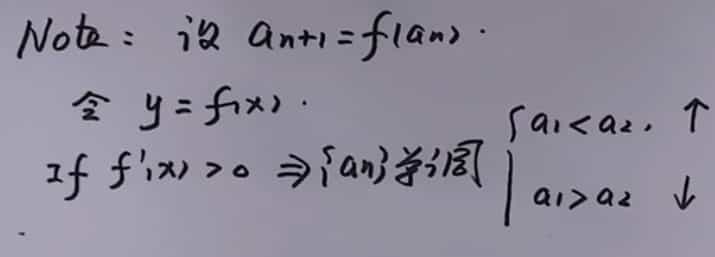 Note: 设 an+1=f(an).
令 y=f(x).
If f'(x)>0 ⇒{an}单调 { a1<a2, ↑
a1>a2 ↓